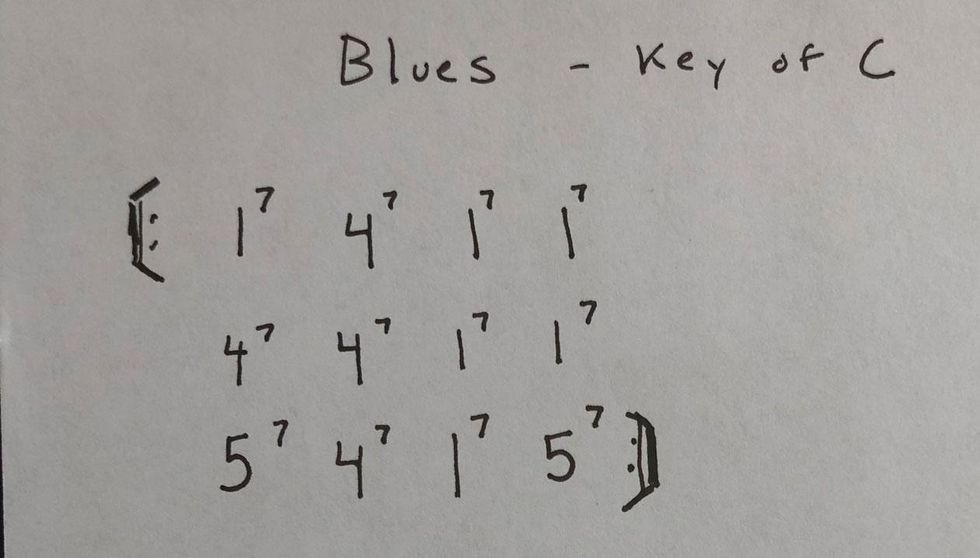 Blues - Key of C
𝄆 1⁷ 4⁷ 1⁷ 1⁷
4⁷ 4⁷ 1⁷ 1⁷
5⁷ 4⁷ 1⁷ 5⁷ 𝄇